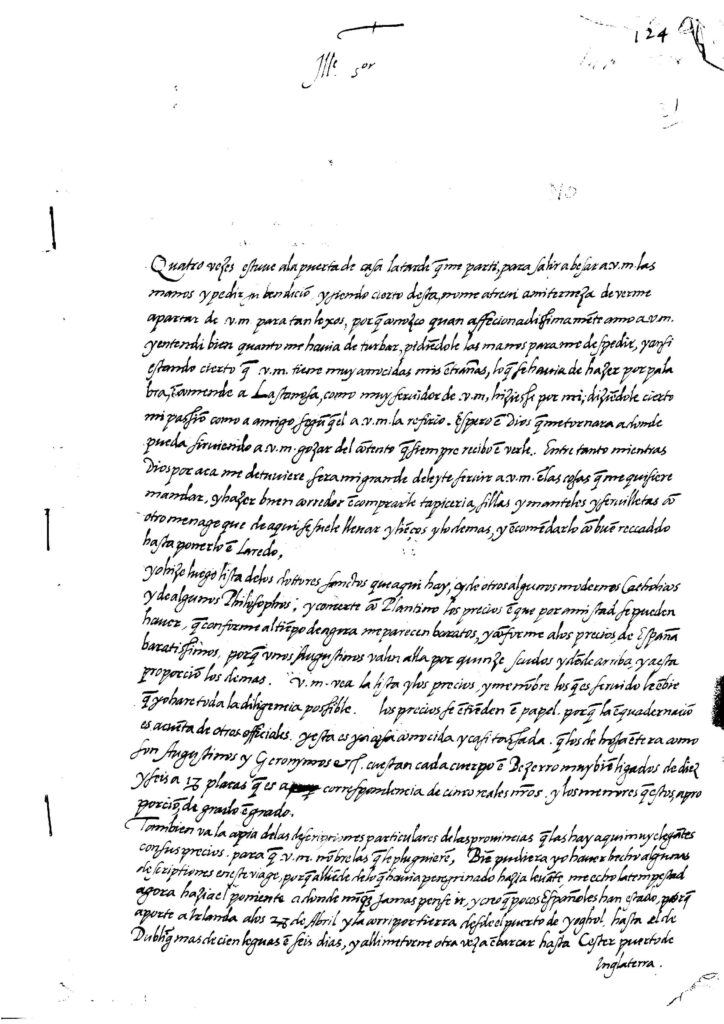 124
Ille. sor
Quatro vezes estuve a la puerta de casa la tarde q̃ me parti, para salir a besar a.v.m las
manos y pedir su bendiciõ y siendo cierto desta, no me atrevi a mi terneza de verme
apartar de v.m para tan lexos, porq̃ conozco quan affecionadissimamẽte amo a v.m.
y entendi bien quanto me havia de turbar, pidiẽdole las manos para me despedir, y assi
estando cierto q̃ v.m. tiene muy conocidas mis ẽtrañas, lo q̃ se havia de hazer por pala
bra, ẽcomende a Lastanosa, como muy servidor de v.m, hiziesse por mi; diziẽdole cierto
mi passiõ como a amigo, segũ q̃ el a v.m. la refirio. Espero ẽ Dios q̃ me tornara a donde
pueda sirviendo a v.m gozar del cõtento q̃ siempre recibo ẽ verle. Entre tanto mientras
Dios por aca me detuviere sera mi grande deleyte servir a v.m. ẽ las cosas q̃ me quisiere
mandar, y hazer buen corredor ẽ comprarle tapiceria, sillas y manteles y servilletas cõ
otro menage que de aqui se suele llevar y liẽços y lo demas, y ẽcomẽdarlo cõ buẽ reccaddo
hasta ponerlo ẽ Laredo,
yo hize luego lista de los dottores sanctos que aqui hay, y de otros algunos modernos Catholicos
y de algunos Philosophos; y concerte cõ Plantino los precios ẽ que por amistad se pueden
haver, q̃ conforme al tiẽpo de agora me parecen baratos, y cõforme a los precios de España
baratissimos, porq̃ unos Augustinos valen alla por quinze scudos y dẽde arriba y a esta
proporciõ los demas. v.m. vea la lista y los precios, y me nõbre los q̃ es servido le ẽbie
q̃ yo hare toda la diligencia possible. los precios se ẽtiẽden ẽ papel. porq̃ la ẽquadernaciõ
es a cuẽta de otros officiales. y esta es ya cosa conocida y casi tassada. q̃ los de hoja ẽtera como
son Augustinos y Geronymos &c. cuestan cada cuerpo ẽ Bezerro muy biẽ ligados de diez
y seis a 17 placas q̃ es a correspondencia de cinco reales nr̃os. y los menores q̃ estos a pro
porciõ, de grado ẽ grado.
Tambien va la copia de las descripciones particulares de las provincias q̃ las hay aqui muy elegãtes
con sus precios. para q̃ v.m. nõbre las q̃ le pluguiere, Biẽ pudiera yo haver hecho algunas
descriptiones en este viage, porq̃ alliẽde de lo q̃ havia peregrinado hazia levãte, me echo la tempestad
agora hazia el poniente a donde nũq̃ jamas pense ir, y creo q̃ pocos Españoles han estado, porq̃
aporte a Irlanda a los 28 de Abril y la corri por tierra desde el puerto de yoghol. hasta el de
Dubliq̃ mas de cien leguas ẽ seis dias, y alli me torne otra vez a ẽbarcar hasta Cester puerto de
Inglaterra.